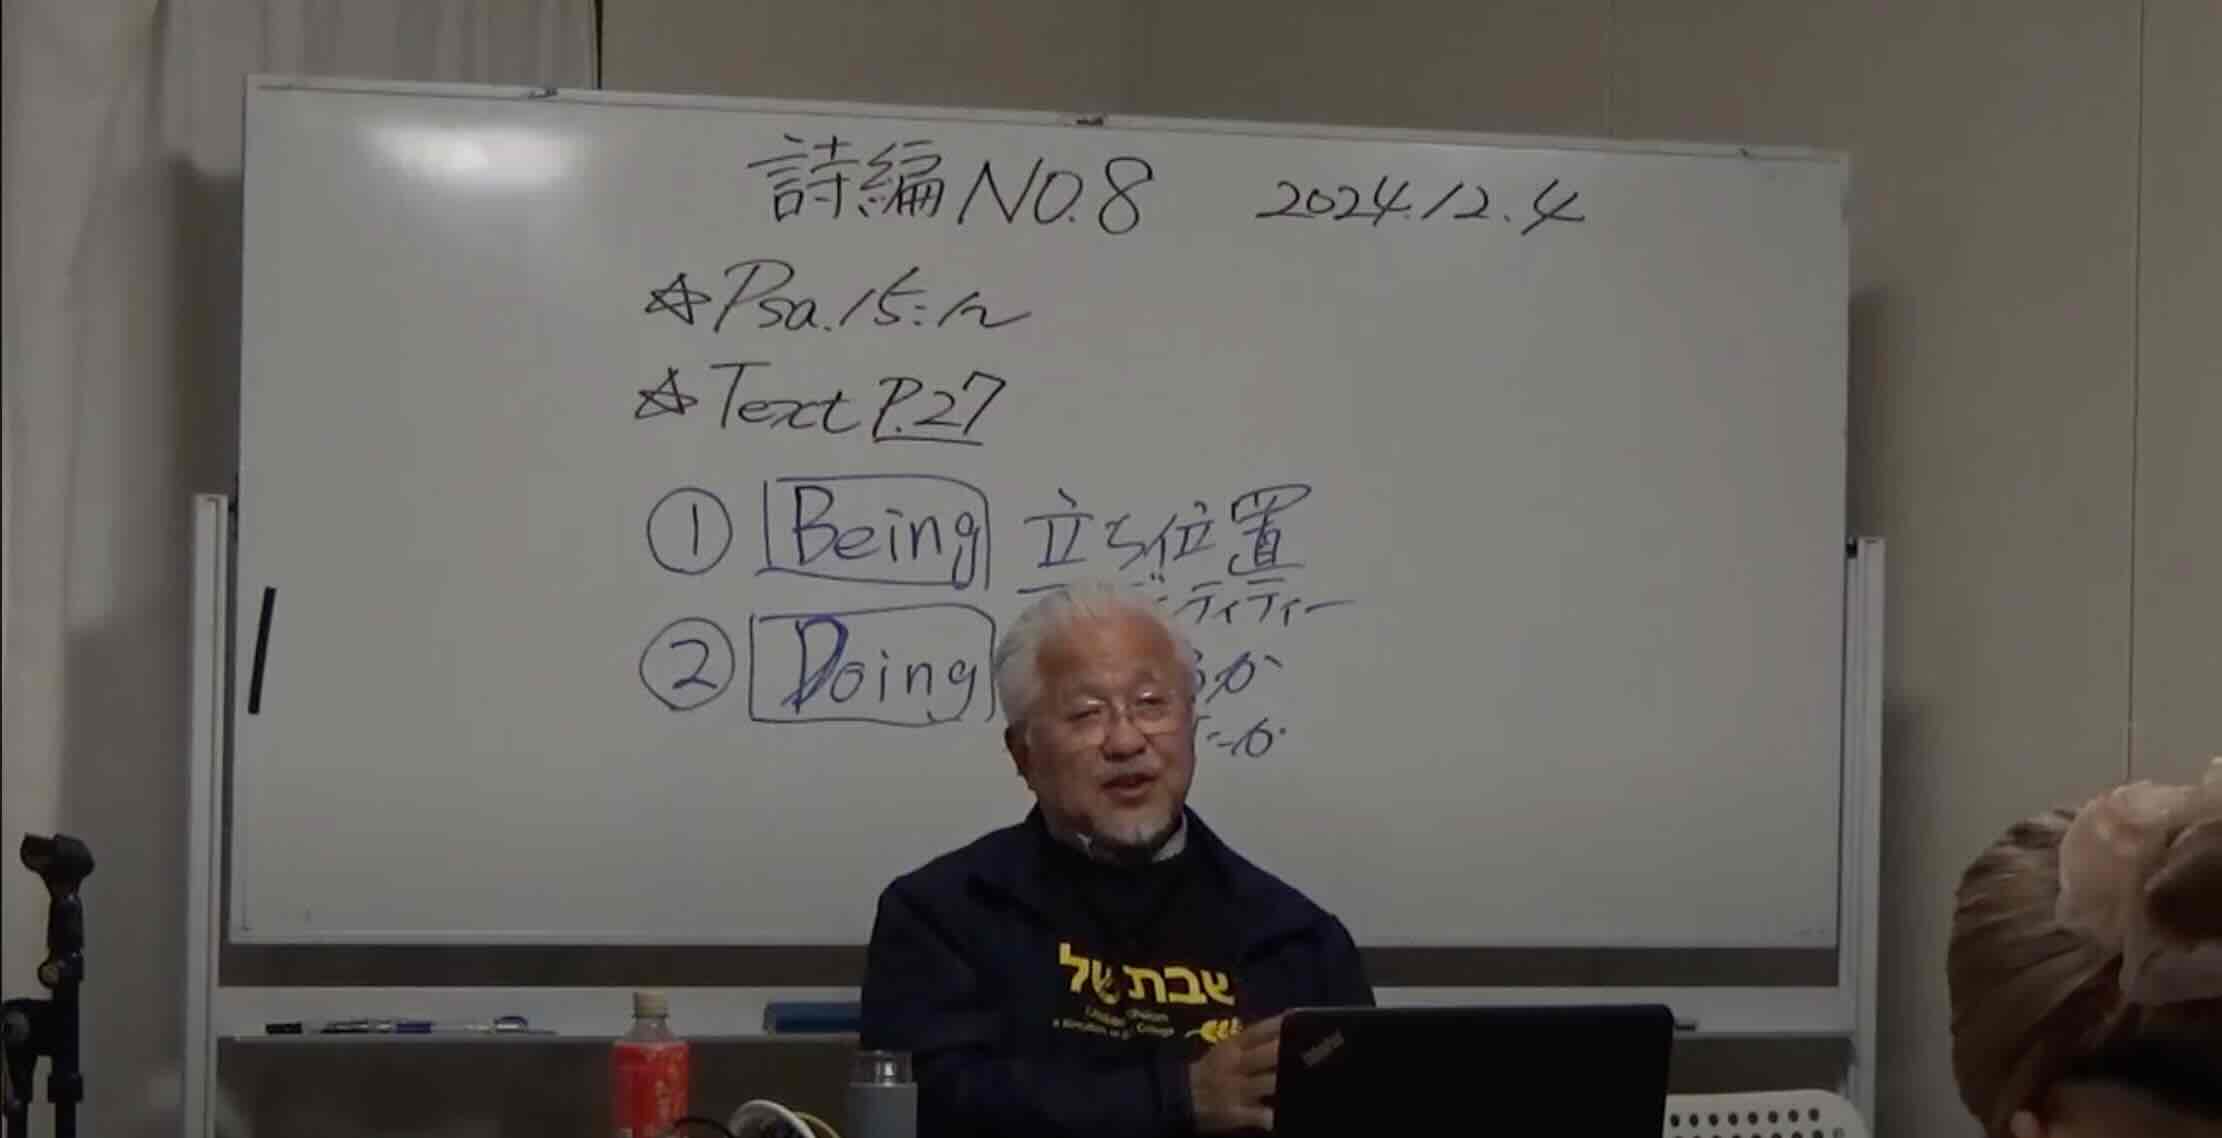 詩編 NO.8 2024.12.4
☆Psa.15:1~
☆Text P.27
① Being 立ち位置
ティティー
② Doing るか
たか
שבת של
ThinkPad